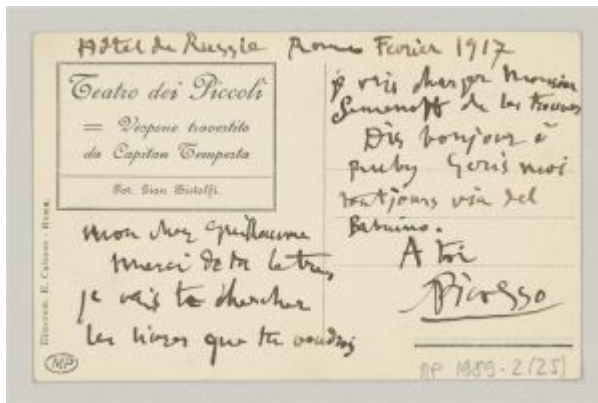 Hôtel de Russie Rome Fevrier 1917
Teatro dei Piccoli
= Vespone travestito
da Capitan Tempesta
Fot. Gian Bistolfi.
mon cher Guillaume
merci de ta letre
je vais te chercher
les livres que tu voudrais
je vais charger Monsieur
Semenoff de les trouver
Dis bonjour à
Ecris moi
toutjours via del
Babuino.
A toi
Picasso
Rome.
MP
MP 1989-2 (25)